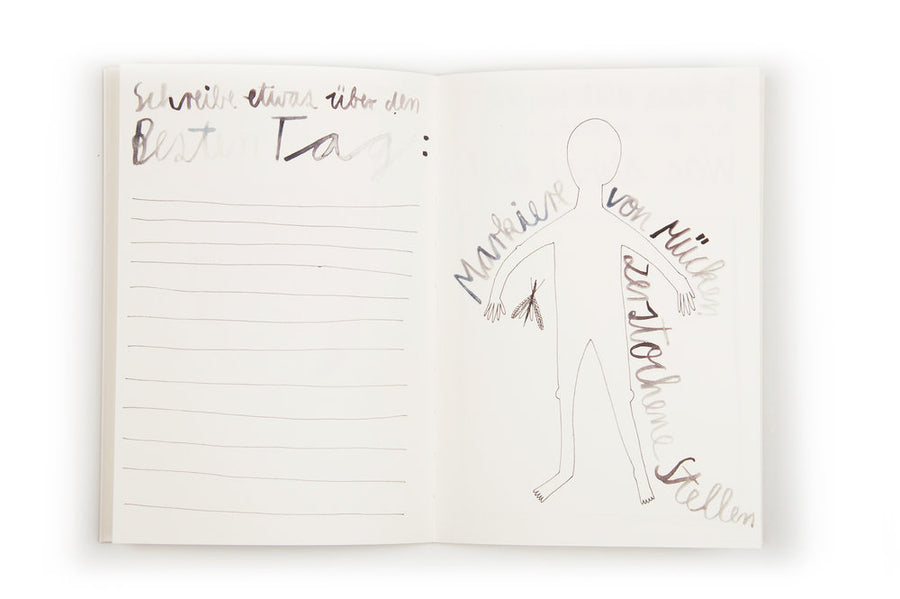 Schreibe etwas über den
Besten Tag:
Markiere von Mücken
zerstochene Stellen